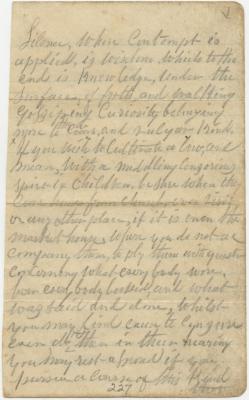 Silence, when Contempt is
applied, is wisdom which to the
end is Knowledge, under the
surface, of froth, and
Curiosity, betraying
more the Coarse, and vulgar kind.
If you wish to Cultivate a low, and
mean, with a meddling
spirit in Children, be sure when the
Come home from Church, or a visit
or any other place, if it is even the
market house, when you do not ac
company them, to ply them with questi
Concerning what every body wore,
how every body looked, and what
was said and done, whilst
you may find cause to Cen
even oft then in their hearing
you may rest assured if you
pursue a Course of this Kind
227